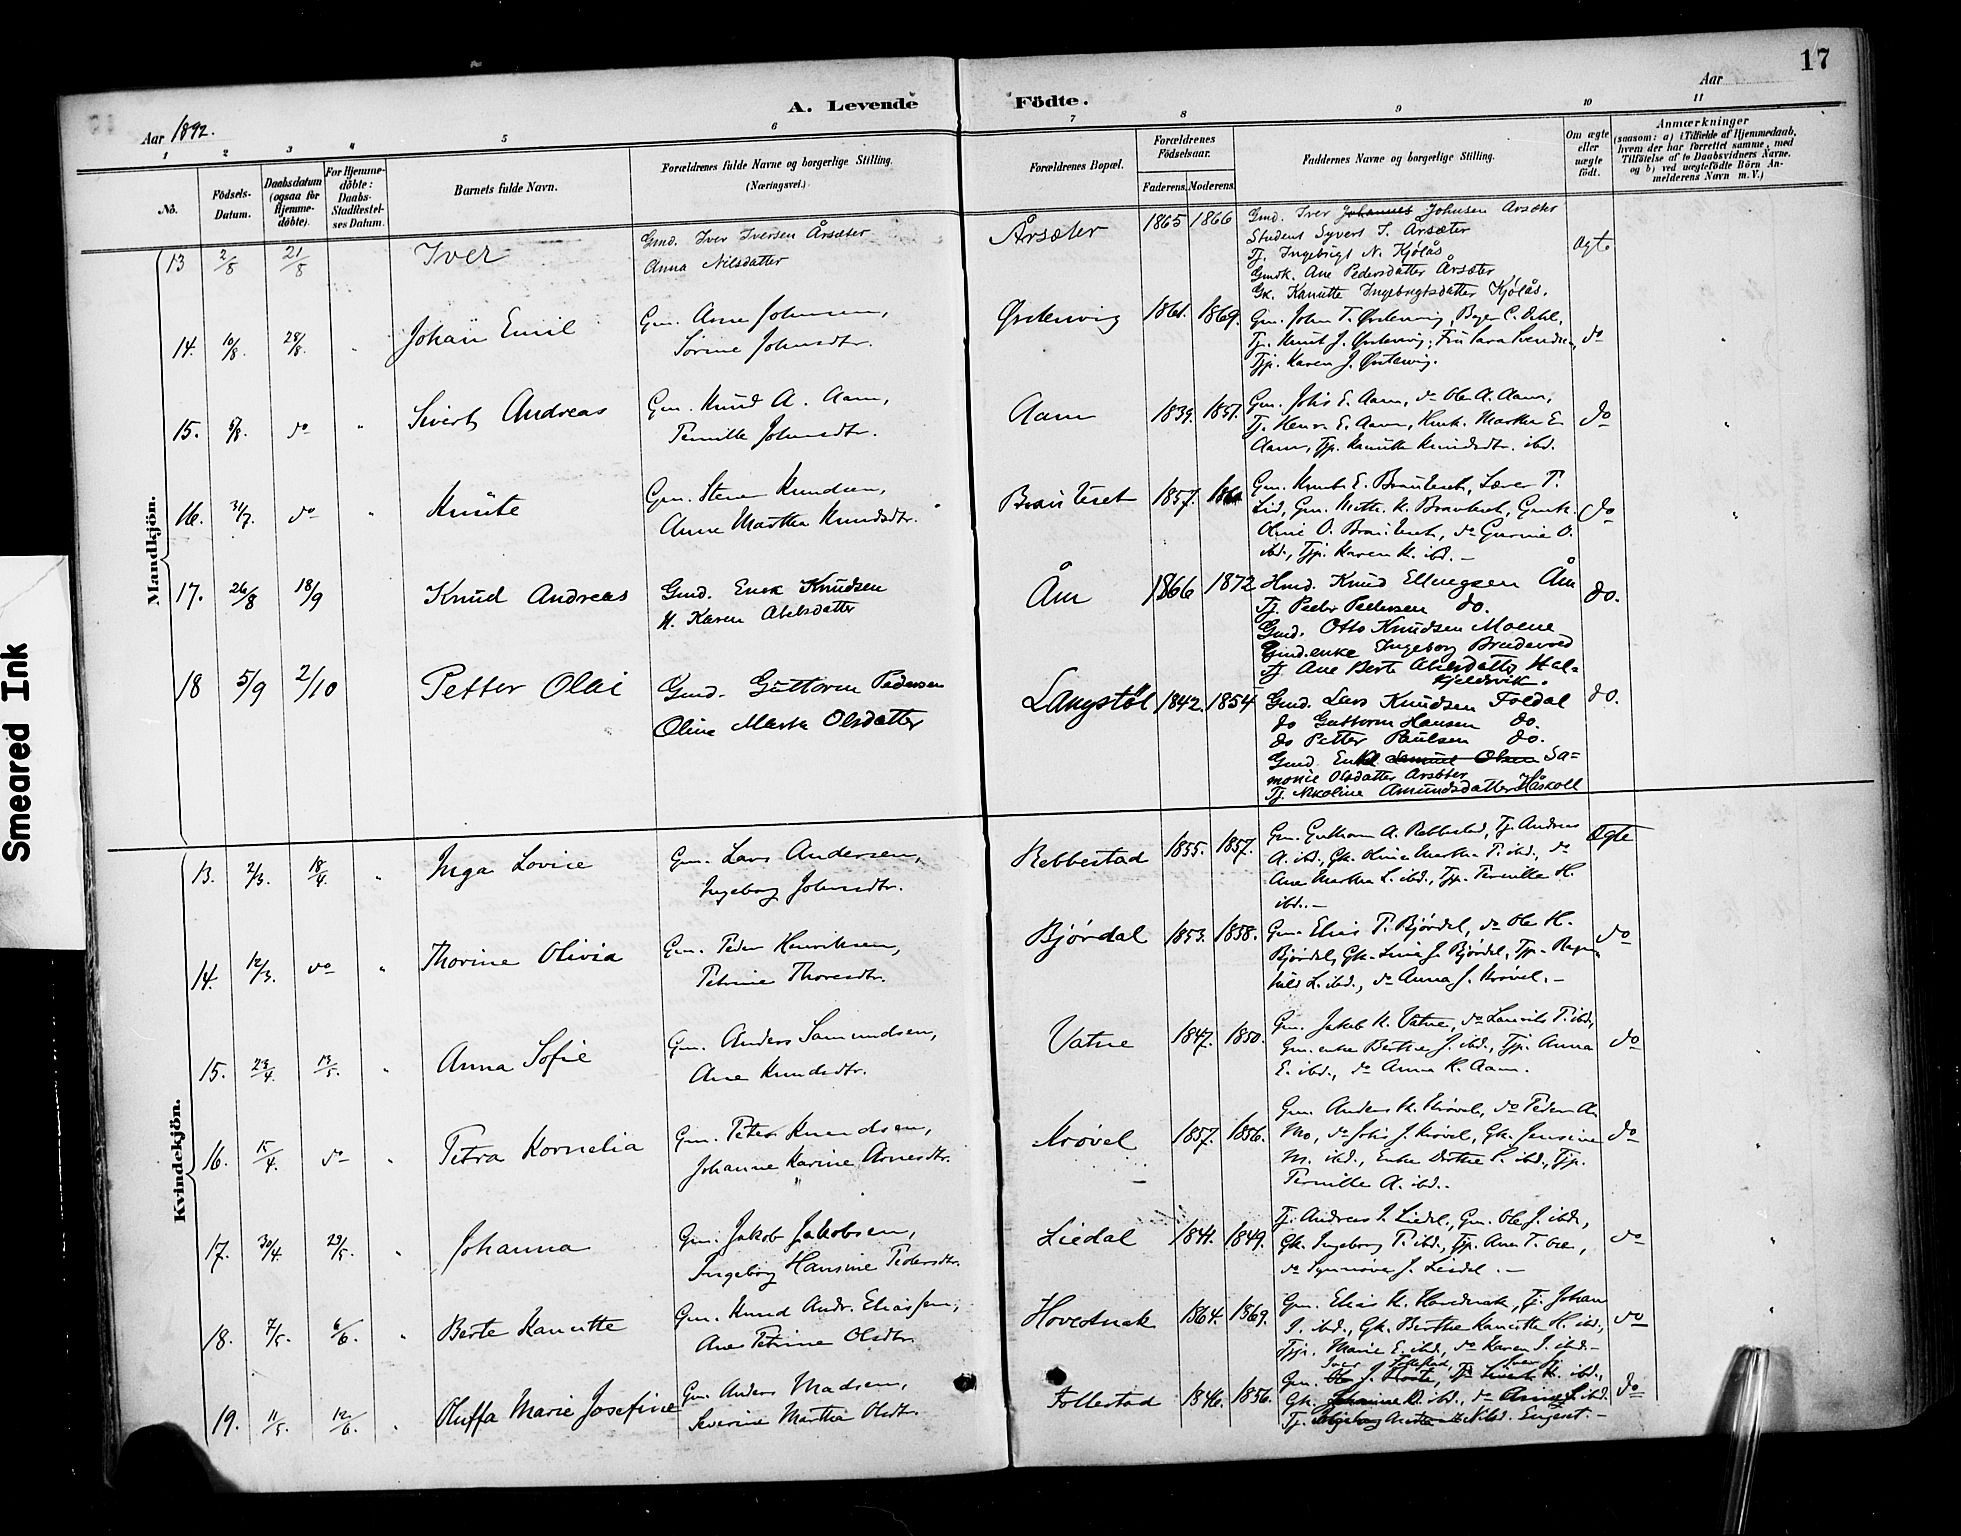 17
A. Levende Födte.
Aar 1892.
Aar
1 2 3 4 5 6 7 8 9 10 11
No.
Födsels-Datum.
Daabsdatum (ogsaa for Hjemme-döbte).
For Hjemme-döbte: Daabs-Stadfestel-ses Datum.
Barnets fulde Navn.
Forældrenes fulde Navne og borgerlige Stilling.
(Næringsvei.)
Forældrenes Bopæl.
Forældrenes Födselsaar.
Faderens. Moderens.
Faddernes Navne og borgerlige Stilling.
Om ægte eller uægte födt.
Anmærkninger
(saasom: a) i Tilfælde af Hjemmedaab, hvem der har forrettet samme, med Tilföielse af to Daabsvidners Navne, og b) ved uægtefödte Börn An-melderens Navn m. V.)
Mandkjön.
13 2/8 21/8 Iver
Gmd. Iver Iversen Årsæter
Anna Nilsdatter
Årsæter 1865 1866
Gmd. Iver Johannes Johnsen Arsæter
Student Syvert I. Arsæter
Tj. Ingebrigt N. Kjölås
Gmdk. Ane Pedersdatter Årsæter
Gk. Kanutte Ingebrigtsdatter Kjölås.
Ægte
14. 10/8. 28/8. Johan Emil
Gm. Arne Johnsen,
Sörine Johnsdtr.
Østenvig 1861. 1869.
Gm. John T. Østenvig,
Tj. Knut J. Østenvig, Fru Lara Svendsen,
Tjp. Karen J. Østenvig.
do
15. 6/8. do Sivert Andreas
Gm. Knud A. Aam,
Pernille Johnsdtr.
Aam 1839. 1857.
Gm. Johs E. Aam, do Ole A. Aam,
Tj. Henrik E. Aam, Martha E.
Aam, Tjp. Kanutte Knudsdtr. ibd.
do
16. 31/7. do Knute
Gm. Steen Knudsen,
Anne Martha Knudsdtr.
Brauteset 1857.
Gm. Knut E. Brauteset, Lærer P.
Lid, Gm. K. Brauteset, Gmk.
Oline O. Brauteset, do Gurine O.
ibd., Tjp. Karen K. ibd. –
do
17. 26/8 18/9 Knud Andreas
Gmd. Enok Knudsen
H. Karen Abelsdatter
Åm 1866 1872
Hmd. Knud Ellingsen Åm
Tj. Peder Pedersen do.
Gmd. Otto Knudsen Moene
Gmd.enke Ingeborg
Tj. Ane Berte Hal-
kjeldsvik.
do.
18 5/9 2/10 Petter Olai
Gmd. Guttorm Pedersen
Oline Marta Olsdatter
Langstöl 1842. 1854
Gmd. Lars Knudsen Foldal
do Guttorm Hansen do.
do Petter Paulsen do.
Gmd Enke Samuel Olsen Sa-
monie Olsdatter Arsæter
Tj. Nikoline Amundsdatter Håskoll
do.
Kvindekjön.
13. 2/3. 18/4. Inga Lovise
Gm. Lars Andersen,
Ingeborg Johnsdtr.
Rebbestad 1855. 1857.
Gm. Guttorm A. Rebbestad, Tj. Andreas
A. ibd., Gk. Oline Martha P. ibd., do
Ane Martha L. ibd., Tjp. Pernille H.
ibd. –
Ægte
14. 12/3. do Thorine Olivia
Gm. Peder Henriksen,
Petrine Thoresdtr.
Björdal 1853. 1858.
Gm. Elias P. Björdal, do Ole H.
Björdal, Gk. Lina J. Björdal, Tjp. Ragn-
hild L. ibd., do Anna J. Krövel. –
do
15. 23/4. 13/5. Anna Sofie
Gm. Anders Samundsen,
Ane Knudsdtr.
Vatne 1847. 1850.
Gm. Jakob K. Vatne, do Laurits P. ibd.,
Gm. enke Berthe J. ibd., Tjp. Anna
E. ibd., do Anna K. Aam.
do
16. 15/4. do Petra Kornelia
Gm. Peter Knudsen,
Johanne Karine Arnesdtr.
Krövel 1857. 1856.
Gm. Anders K. Krövel, do Peder A.
Mo, do Johs J. Krövel, Gk. Jensine
M. ibd., Enke Dorthe P. ibd., Tjp.
Pernille A. ibd..
do
17. 30/4. 29/5. Johanna
Gm. Jakob Jakobsen,
Ingeborg Hansine Pedersdtr.
Liedal 1841. 1849.
Tj. Andreas I. Liedal, Gm. Ole J. ibd.,
Gk. Ingeborg P. ibd., Tjp. Ane T.
do Synnöve J. Liedal. –
do
18. 7/5. 6/6. Berte Kanutte
Gm. Knud Andr. Eliassen,
Ane Petrine Olsdtr.
Hovednak 1864. 1869.
Gm. Elias K. Hovdenak, Tj. Johan
I. ibd., Gk. Berthe Kanutte H. ibd.,
Tjp. Marie E. ibd., do Karen I. ibd. –
do
19. 11/5. 12/6. Oluffa Marie Josefine
Gm. Anders Madsen,
Severine Martha Olsdtr.
Follestad 1846. 1856.
Gk. ibd., do ibd.
Tj. Engeset. –
do
Smeared Ink